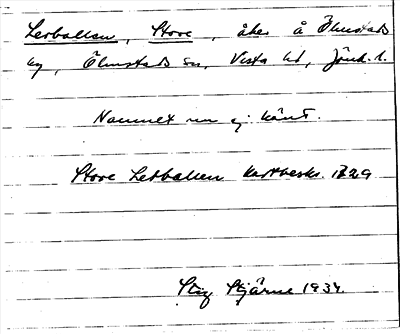 Lerbacken, Store, åker å Ölmstads
by, Ölmstads sn, Vista hd, Jönk. l.
Namnet nu ej känt.
Store Lerbacken kartbeskr. 1829
Stig Stjärne 1934